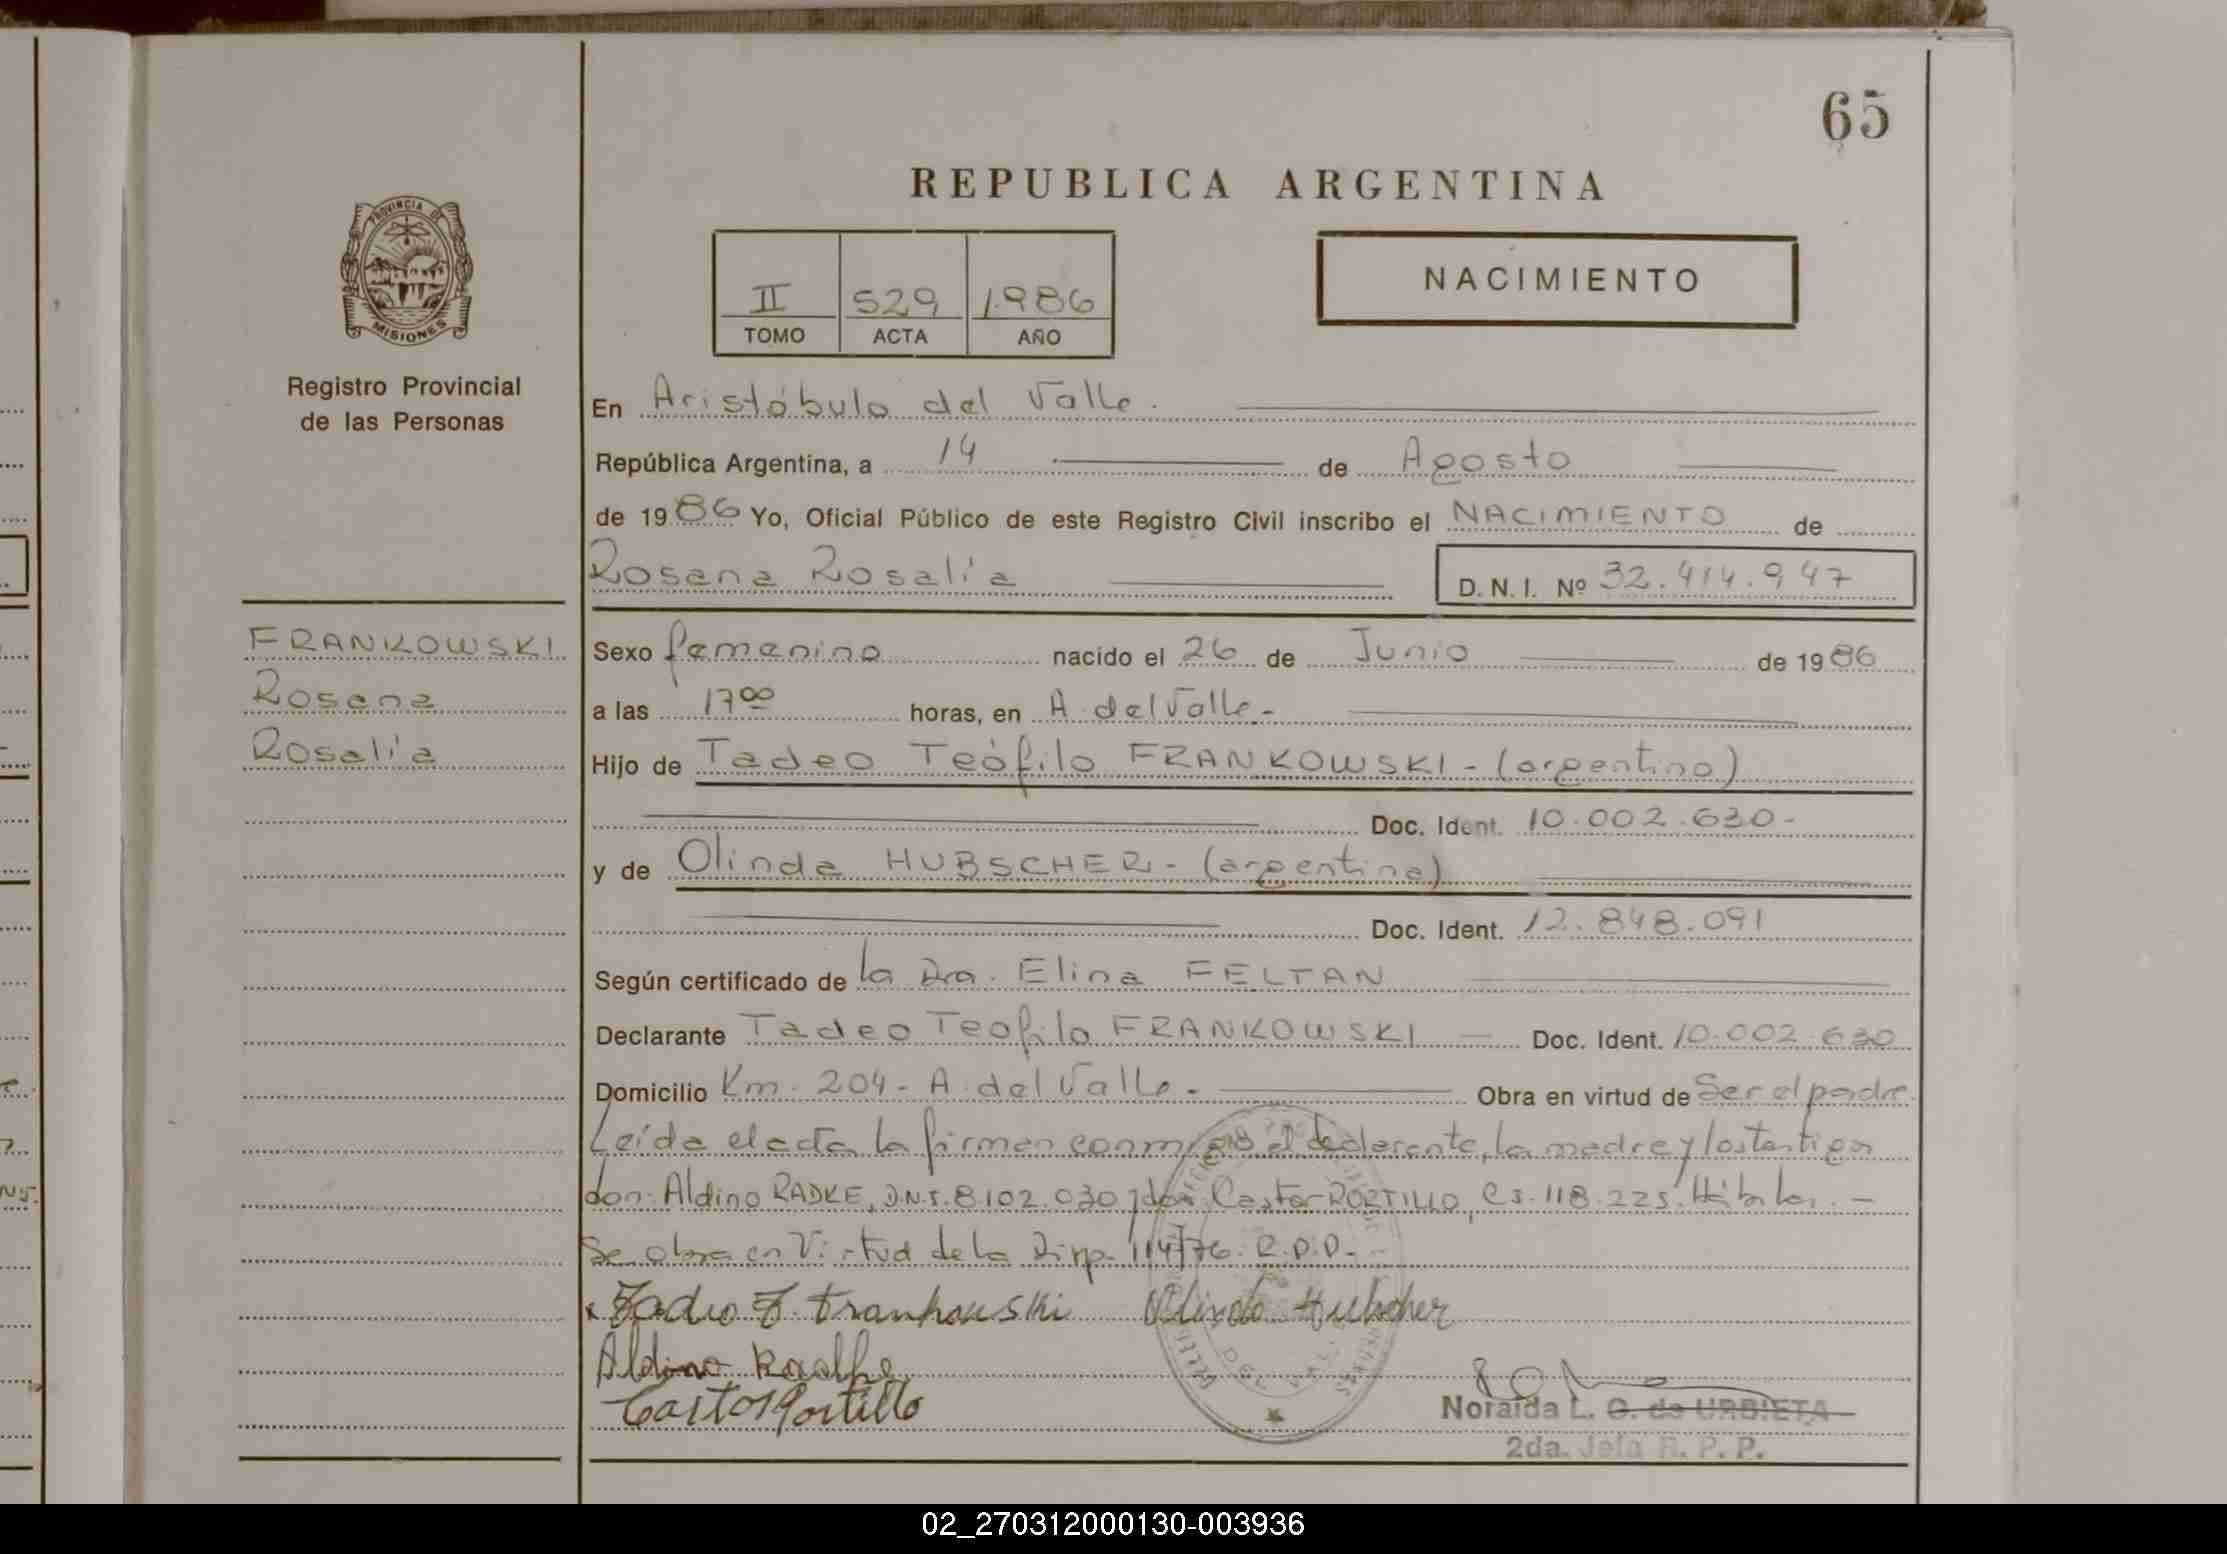 65
REPUBLICA ARGENTINA
PROVINCIA DE
MISIONES
Registro Provincial
de las Personas
II 529 1986
TOMO ACTA AÑO
NACIMIENTO
En Aristóbulo del Valle.
República Argentina, a 14 de Agosto
de 1986 Yo, Oficial Público de este Registro Civil inscribo el NACIMIENTO de
Rosana Rosalía D. N. I. Nº 32.414.947
FRANKOWSKI
Rosana
Rosalía
Sexo femenino nacido el 26 de Junio de 1986
a las 17 00 horas, en A. del Valle.-
Hijo de Tadeo Teófilo FRANKOWSKI - (argentino)
Doc. Ident. 10.002.630-
y de Olinda HUBSCHER - (argentina)
Doc. Ident. 12.848.091
Según certificado de la Dra. Elina FELTAN
Declarante Tadeo Teofilo FRANKOWSKI — Doc. Ident. 10.002.630
Domicilio Km. 204 - A. del Valle. - Obra en virtud de Ser el padre.
Leída el acta la firman conmigo el declarante, la madre y los testigos
don: Aldino RADKE, D.N.I. 8.102.030 y don Castor PORTILLO, C.I. 118.225. Hábiles. -
Se obra en Virtud de la Disp. 114/76. R.P.P.-
Tadeo T. Frankouski Olinda Hubscher
Aldino
Castor Portillo
DEL VALLE
Noraida L. G. de URBIETA
2da. Jefa R. P. P.
02_270312000130-003936